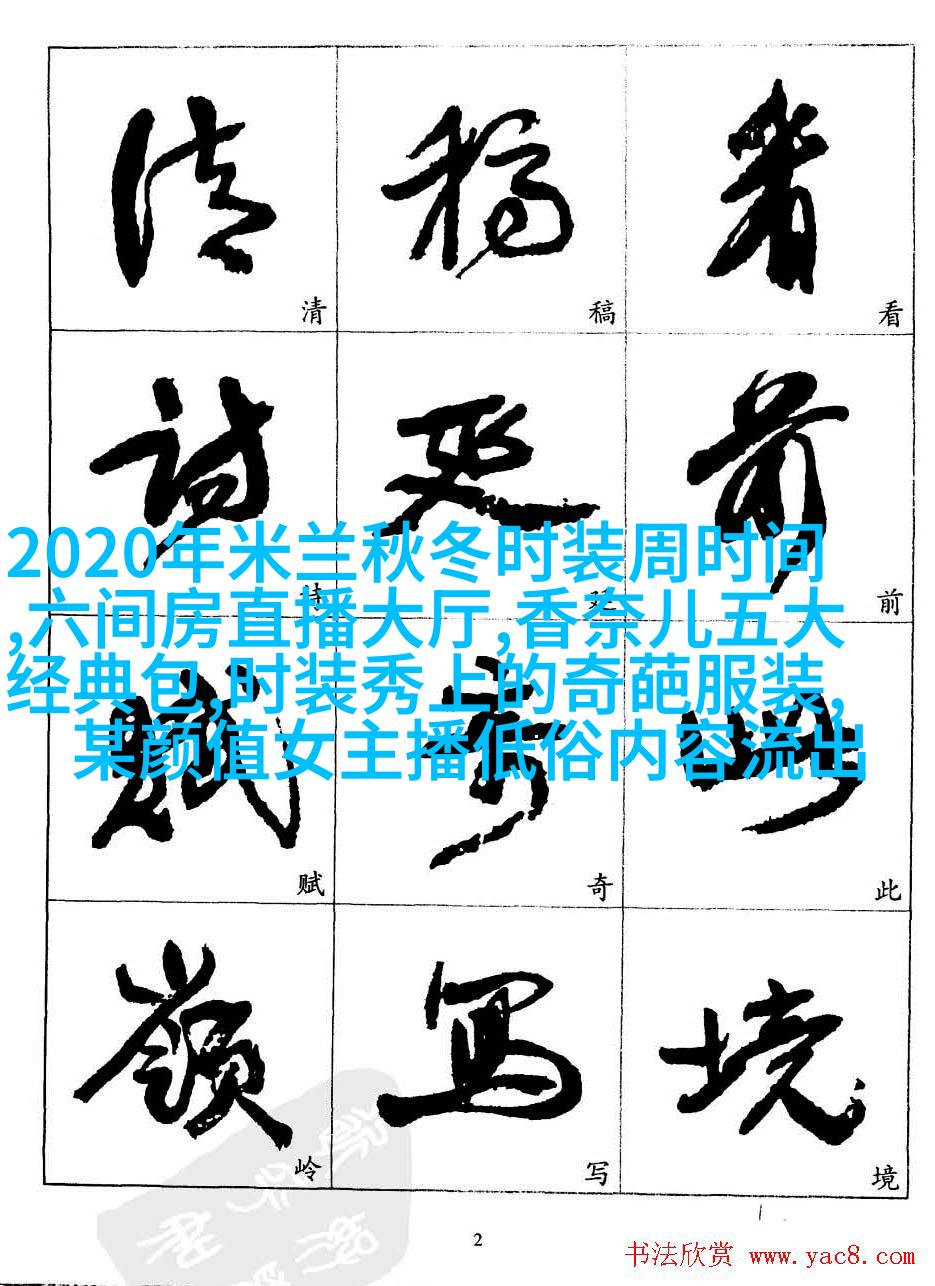 清 稿 看
诗 延 前
2020年米兰秋冬时装周时间
,六间房直播大厅,香奈儿五大
经典包,时装秀上的奇葩服装,
某颜值女主播低俗内容流出
赋 奇 此
岭 写 境
2
书法欣赏 www.yac8.com